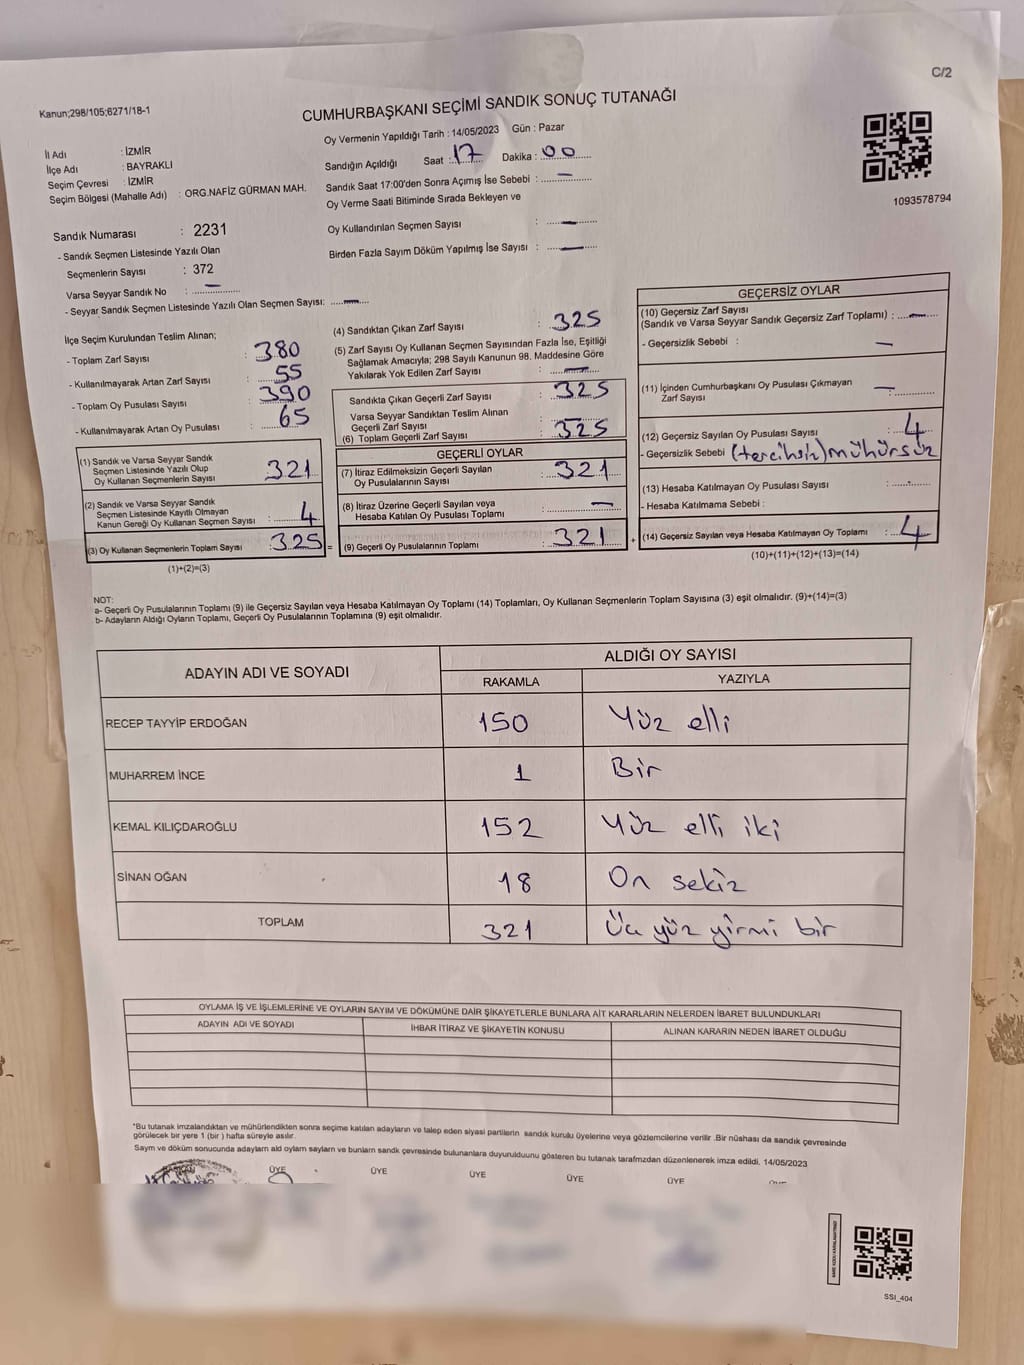 C/2
Kanun;298/105;6271/18-1
CUMHURBAŞKANI SEÇİMİ SANDIK SONUÇ TUTANAĞI
Oy Vermenin Yapıldığı Tarih : 14/05/2023 Gün : Pazar
İl Adı : İZMİR
İlçe Adı : BAYRAKLI
Seçim Çevresi : İZMİR
Seçim Bölgesi (Mahalle Adı) : ORG.NAFİZ GÜRMAN MAH.
Sandığın Açıldığı Saat : 17 Dakika : 00
Sandık Saat 17:00'den Sonra Açımış İse Sebebi : —
Oy Verme Saati Bitiminde Sırada Bekleyen ve
Oy Kullandırılan Seçmen Sayısı : —
Birden Fazla Sayım Döküm Yapılmış İse Sayısı : —
1093578794
Sandık Numarası : 2231
- Sandık Seçmen Listesinde Yazılı Olan
Seçmenlerin Sayısı : 372
Varsa Seyyar Sandık No : —
- Seyyar Sandık Seçmen Listesinde Yazılı Olan Seçmen Sayısı: —
İlçe Seçim Kurulundan Teslim Alınan;
- Toplam Zarf Sayısı : 380
- Kullanılmayarak Artan Zarf Sayısı : 55
- Toplam Oy Pusulası Sayısı : 390
- Kullanılmayarak Artan Oy Pusulası : 65
(1) Sandık ve Varsa Seyyar Sandık
Seçmen Listesinde Yazılı Olup
Oy Kullanan Seçmenlerin Sayısı : 321
(2) Sandık ve Varsa Seyyar Sandık
Seçmen Listesinde Kayıtlı Olmayan
Kanun Gereği Oy Kullanan Seçmen Sayısı : 4
(3) Oy Kullanan Seçmenlerin Toplam Sayısı : 325 =
(1)+(2)=(3)
(4) Sandıktan Çıkan Zarf Sayısı : 325
(5) Zarf Sayısı Oy Kullanan Seçmen Sayısından Fazla İse, Eşitliği
Sağlamak Amacıyla; 298 Sayılı Kanunun 98. Maddesine Göre
Yakılarak Yok Edilen Zarf Sayısı : —
Sandıkta Çıkan Geçerli Zarf Sayısı : 325
Varsa Seyyar Sandıktan Teslim Alınan
Geçerli Zarf Sayısı :
(6) Toplam Geçerli Zarf Sayısı : 325
GEÇERLİ OYLAR
(7) İtiraz Edilmeksizin Geçerli Sayılan
Oy Pusulalarının Sayısı : 321
(8) İtiraz Üzerine Geçerli Sayılan veya
Hesaba Katılan Oy Pusulası Toplamı : —
(9) Geçerli Oy Pusulalarının Toplamı : 321 +
GEÇERSİZ OYLAR
(10) Geçersiz Zarf Sayısı
(Sandık ve Varsa Seyyar Sandık Geçersiz Zarf Toplamı) : —
- Geçersizlik Sebebi : —
(11) İçinden Cumhurbaşkanı Oy Pusulası Çıkmayan
Zarf Sayısı : —
(12) Geçersiz Sayılan Oy Pusulası Sayısı : 4
- Geçersizlik Sebebi (tercihsiz) mühürsüz
(13) Hesaba Katılmayan Oy Pusulası Sayısı :
- Hesaba Katılmama Sebebi :
(14) Geçersiz Sayılan veya Hesaba Katılmayan Oy Toplamı : 4
(10)+(11)+(12)+(13)=(14)
NOT:
a- Geçerli Oy Pusulalarının Toplamı (9) ile Geçersiz Sayılan veya Hesaba Katılmayan Oy Toplamı (14) Toplamları, Oy Kullanan Seçmenlerin Toplam Sayısına (3) eşit olmalıdır. (9)+(14)=(3)
b- Adayların Aldığı Oyların Toplamı, Geçerli Oy Pusulalarının Toplamına (9) eşit olmalıdır.
ADAYIN ADI VE SOYADI
ALDIĞI OY SAYISI
RAKAMLA YAZIYLA
RECEP TAYYİP ERDOĞAN 150 Yüz elli
MUHARREM İNCE 1 Bir
KEMAL KILIÇDAROĞLU 152 Yüz elli iki
SİNAN OĞAN 18 On sekiz
TOPLAM 321 Üç yüz yirmi bir
OYLAMA İŞ VE İŞLEMLERİNE VE OYLARIN SAYIM VE DÖKÜMÜNE DAİR ŞİKAYETLERLE BUNLARA AİT KARARLARIN NELERDEN İBARET BULUNDUKLARI
ADAYIN ADI VE SOYADI İHBAR İTİRAZ VE ŞİKAYETİN KONUSU ALINAN KARARIN NEDEN İBARET OLDUĞU
*Bu tutanak imzalandıktan ve mühürlendikten sonra seçime katılan adayların ve talep eden siyasi partilerin sandık kurulu üyelerine veya gözlemcilerine verilir .Bir nüshası da sandık çevresinde
görülecek bir yere 1 (bir ) hafta süreyle asılır.
Sayım ve döküm sonucunda adayların ald oyların sayların ve bunların sandık çevresinde bulunanlara duyurulduunu gösteren bu tutanak tarafmzdan düzenlenerek imza edildi. 14/05/2023
BAŞKAN ÜYE ÜYE ÜYE ÜYE ÜYE
SSI_404